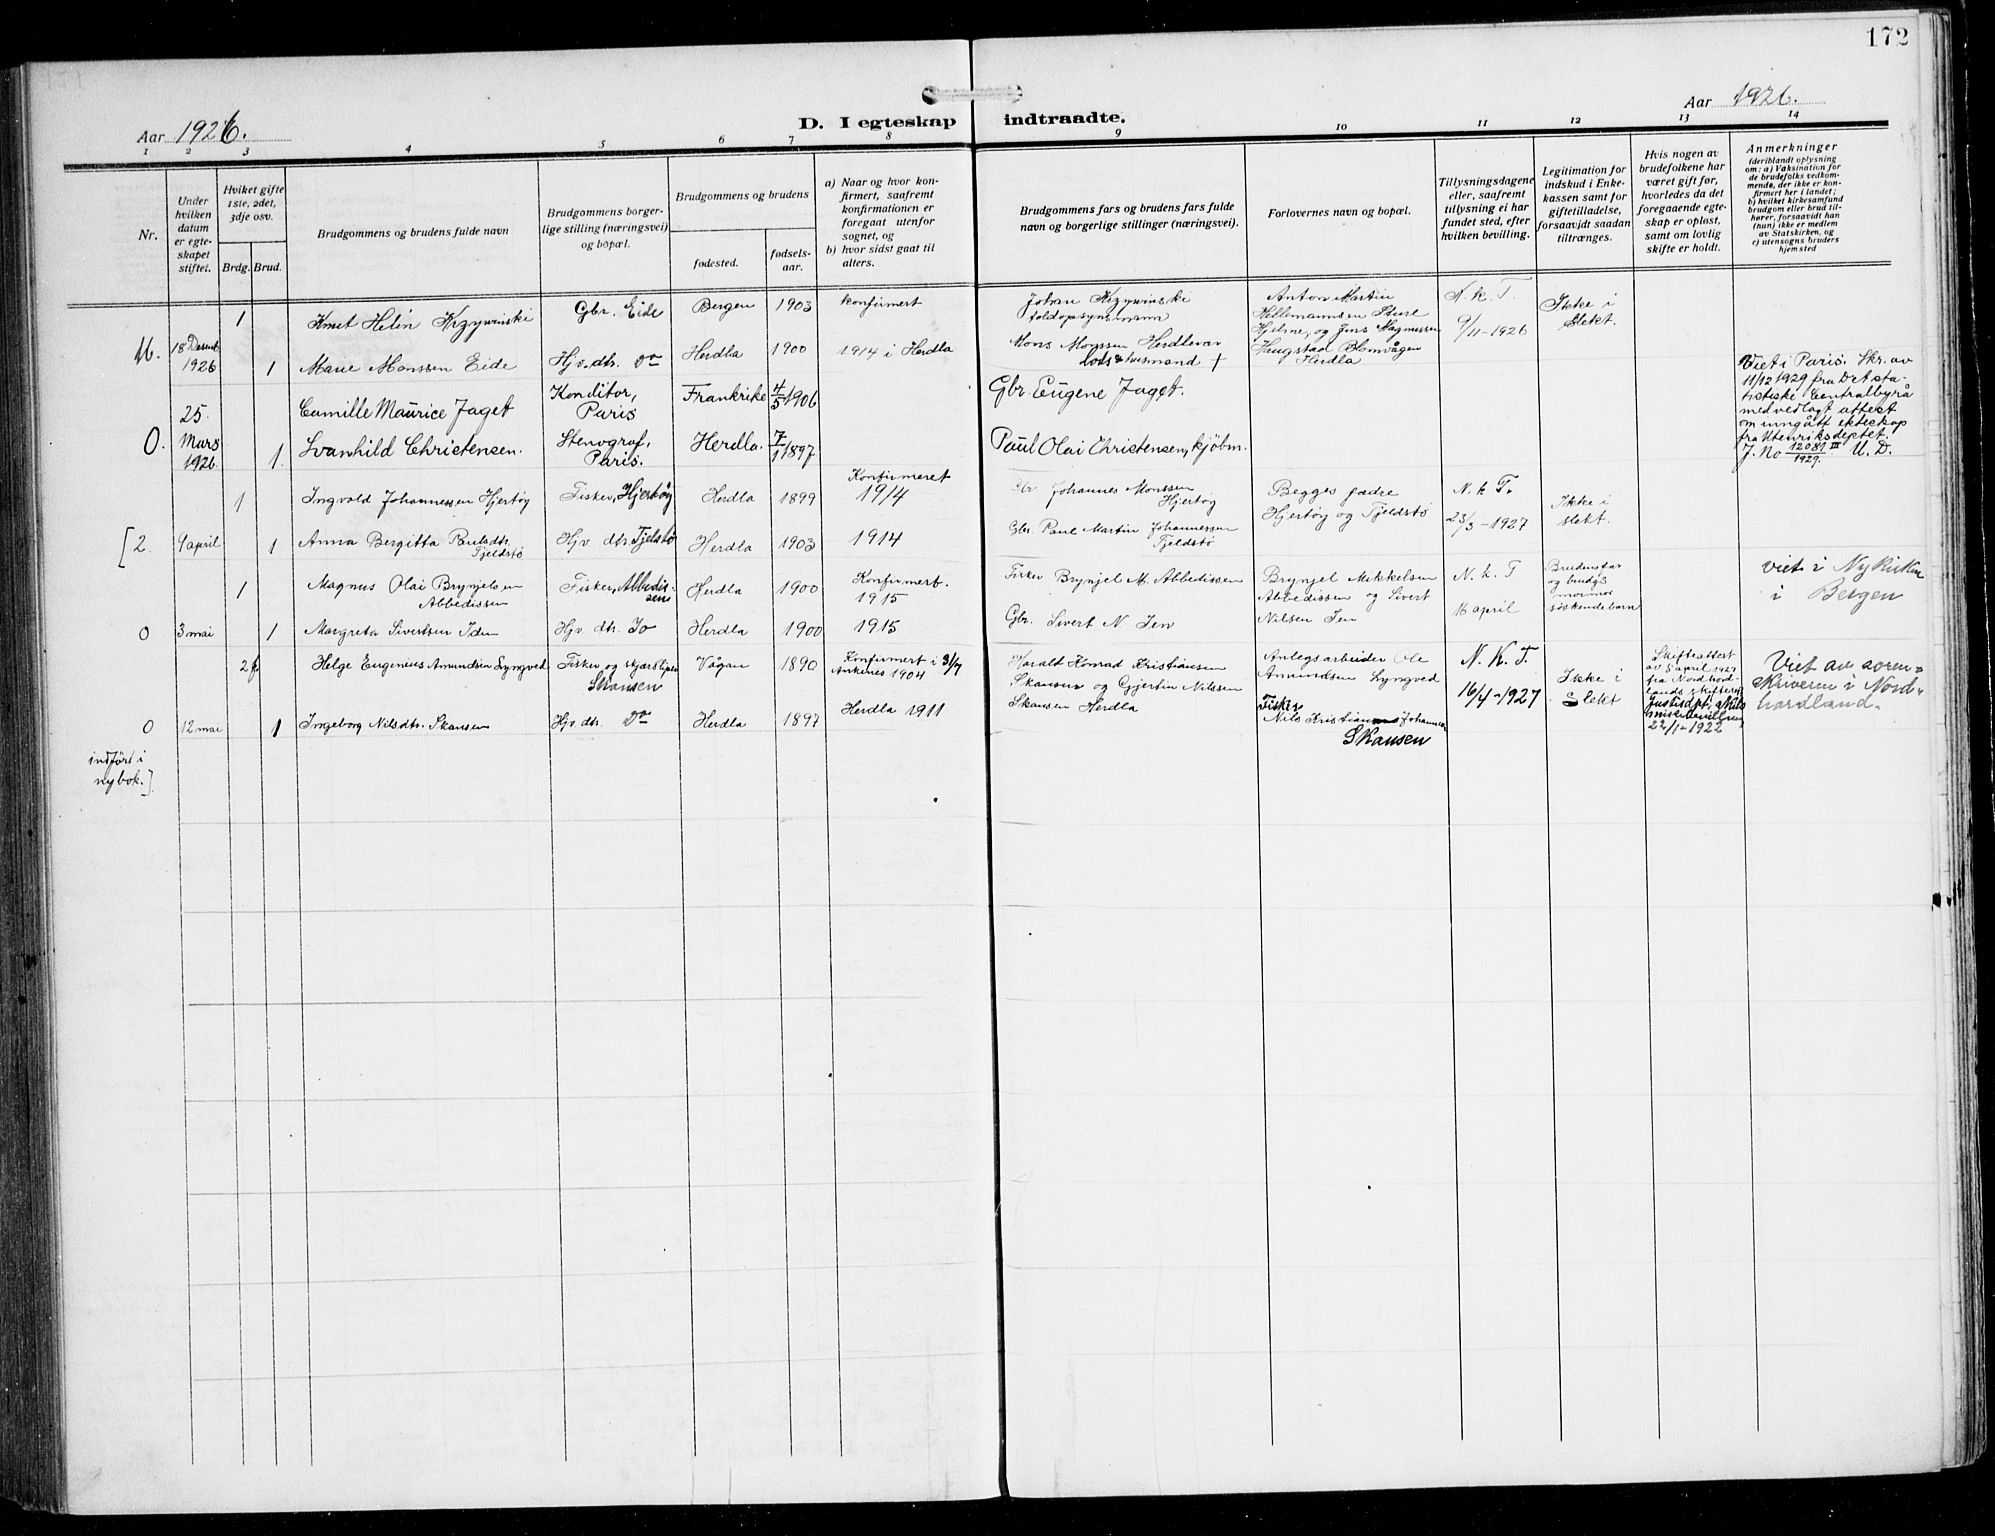 172
Aar 1926.
D. I egteskap indtraadte.
Aar 1926.
1 2 3 4 5 6 7 8 9 10 11 12 13 14
Nr.
Under hvilken datum er egteskapet stiftet.
Hviket gifte 1ste, 2det, 3dje osv.
Brdg. Brud.
Brudgommens og brudens fulde navn
Brudgommens borgerlige stilling (næringsvei) og bopæl.
Brudgommens og brudens
fødested.
fødselsaar.
a) Naar og hvor konfirmert, saafremt konfirmationen er foregaat utenfor sognet, og
b) hvor sidst gaat til alters.
Brudgommens fars og brudens fars fulde navn og borgerlige stillinger (næringsvei).
Forlovernes navn og bopæl.
Tillysningsdagene eller, saafremt tillysning ei har fundet sted, efter hvilken bevilling.
Legitimation for indskud i Enkekassen samt for giftetilladelse, forsaavidt saadan tiltrænges.
Hvis nogen av brudefolkene har været gift før, hvorledes da det foregaaende egteskap er opløst, samt om lovlig skifte er holdt.
Anmerkninger
(deriblandt oplysning om: a) Vaksination for de brudefolks vedkommende, der ikke er konfirmert her i landet; b) hvilket kirkesamfund brudgom eller brud tilhører, forsaavidt han (hun) ikke er medlem av Statskirken, og c) utensogns bruders hjemsted
1 Knut Helén Krzywinski Gbr. Eide Bergen 1903 konfirmert
Johan Krzywinski toldopsynsmann
Anton Martin Hillemannsen Sture Hjelme, og Jens Magnussen Haugstad Blomvågen Herdla
N. k. T. 9/11-1926
Ikke i slekt.
16. 18 Desemb 1926 1 Marie Monssen Eide Hjv. dtr. Do Herdla 1900 1914 i Herdla
Mons Monssen Herdlevær lods & husmand +
25. Mars 1926 Camille Maurice Jaget Konditor, Paris Frankrike 4/5 1906
Gbr Eugene Jaget.
Viet i Paris. Skr. av 11/12 1929 fra Det statistiske Centralbyrå med vedlagt attest om inngått ekteskap fra Utenriksdeptet. J. No 12081 III/1929. U. D.
O. 1. Svanhild Christensen. Stenograf, Paris. Herdla. 7/1 1897
Paul Olai Christensen, kjøbm.
1 Ingvald Johannessen Hjertøy Fisker, Hjertøy Herdla 1899 Konfirmeret 1914
Gbr Johannes Monssen Hjertøy
Begges fædre Hjertøy og Tjeldstø
N. k T. 23/3-1927
Ikke i slekt.
[2. 9 april 1 Anna Bergitta Paulsdtr. Tjeldstø Hjv. dtr. Tjelstø Herdla 1903 1914
Gbr. Paul Martin Johannessen Tjeldstø
1 Magnus Olai Brynjelsen Abbedissen Fisker, Abbedissen Herdla 1900 Konfirmert. 1915
Fisker Brynjel M. Abbedissen
Brynjel Mikkelsen Abbedissen og Sivert Nilsen Ien
N. k. T 16 april
Brudens far og brudgs mormor søskendebarn
viet i Nykirken i Bergen
0 3 mai 1 Margreta Sivertsen Iden Hjv. dtr. Io Herdla 1900 1915
Gbr. Sivert N Ien
2 f. Helge Eugenius Amundsen Lyngved Fisker og skjærsliper Skansen Vågan 1890 Konfirmert i Ankenes 1904 3/7
Harald Konrad Kristiansen Skansen og Gjertin Nilssen Skansen Herdla
Anlegsarbeider Ole Amundsen Lyngved
N. K. T. 16/4-1927
Ikke i Slekt
Skifteattest av 5 april 1927 fra Nordhordlands skifterett Justisdpt. skilsmissebevilling 22/1-1922
Viet av sorenskriveren i Nordhordland.
0 12 mai 1 Ingeborg Nilsdtr. Skansen Hjv. dtr. Do Herdla 1897 Herdla 1911
Fisker Nils Kristian Johannes Skansen
indført i ny bok.]